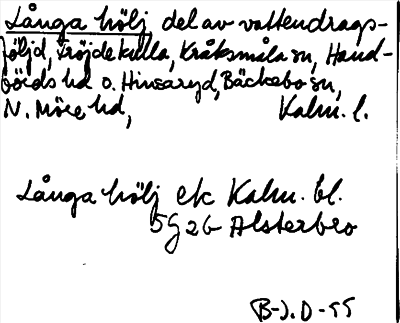 Långa hölj, del av vattendrags-
följd, Fröjdekulla, Kråksmåla sn, Hand-
börds hd o. Hinsaryd, Bäckebo sn,
N. Möre hd, Kalm. l.
Långa hölj ek Kalm. bl.
5G 2b Alsterbro
B-J. D-55